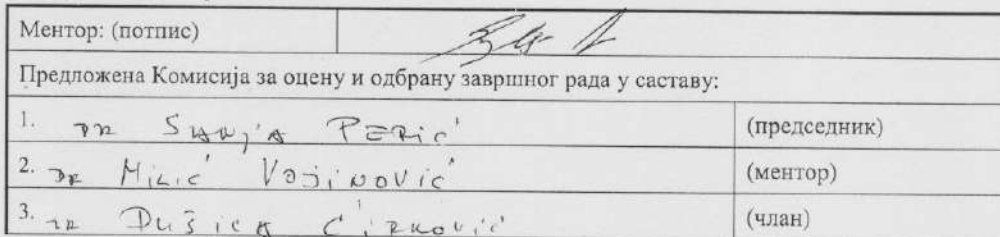 Ментор: (потпис)
Предложена Комисија за оцену и одбрану завршног рада у саставу:
1. DR SANJA PERIĆ (председник)
2. DR MILIĆ VOJINOVIĆ (ментор)
3. DR DUŠICA ĆIRKOVIĆ (члан)